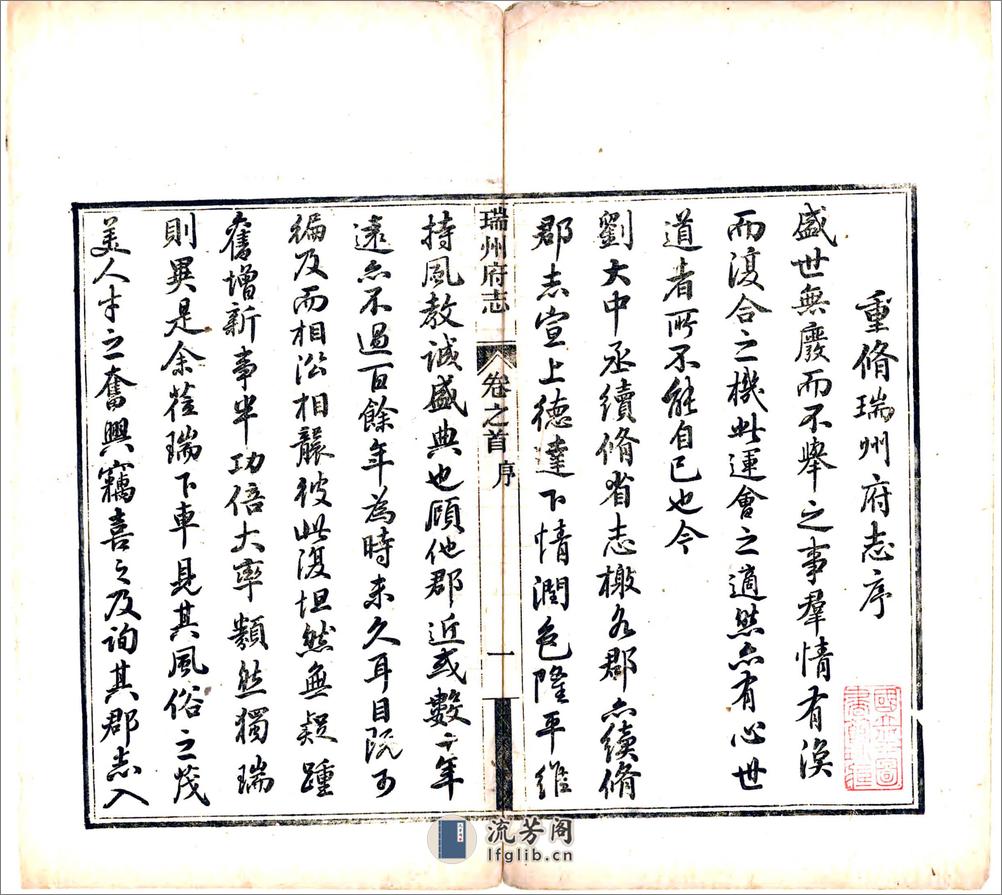 重脩瑞州府志序
盛世無廢而不舉之事羣情有渙
而復合之機此運會之適然亦有心世
道者所不能自已也今
劉大中丞續脩省志檄各郡亦續脩
郡志宣上德達下情潤色隆平維
瑞州府志
卷之首
序
一
持風教誠盛典也顧他郡近或數十年
遠亦不過百餘年為時未久耳目既可
徧及而相沿相襲彼此復坦然無疑踵
舊增新事半功倍大率類然獨瑞
則異是余蒞瑞下車見其風俗之茂
美人才之奮興竊喜之及詢其郡志入
流芳阁
lfglib.cn